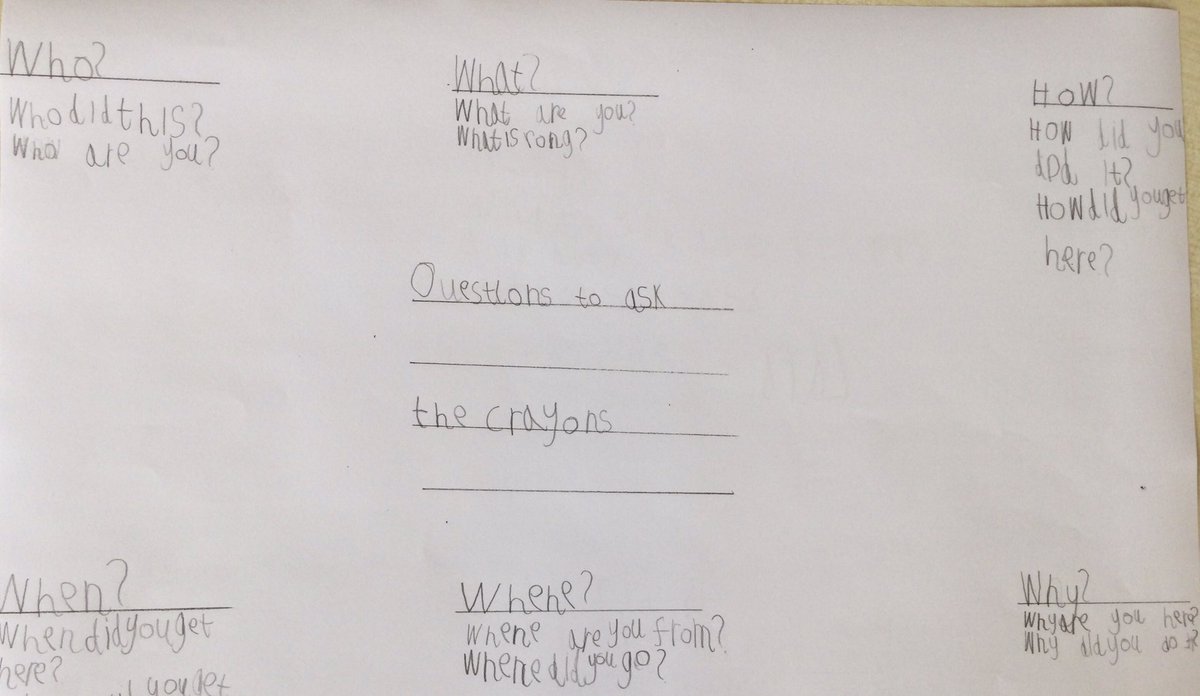 Who?
Who did this?
Who are you?
What?
What are you?
What is rong?
How?
How did you
it?
How did you get
here?
Questions to ask
the crayons
When?
When did you get
here?
you get
Where?
Where are you from?
Where did you go?
Why?
Why are you here?
Why did you do